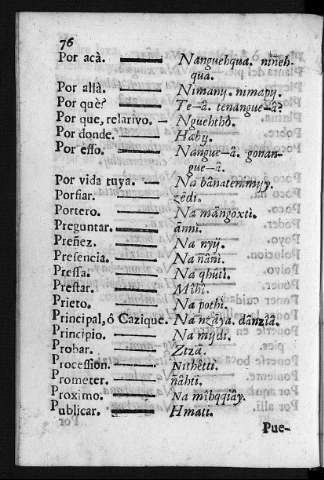 76
Por acà. Nanguehqua. ó nin̄eh-
qua.
Por allà. Nimany. nimapy.
Por què? Te—â. tenangue—â?
Por que, relarivo. — Nguehthò.
Por donde. Hàby.
Por esso. Nangue—â. gonan-
gue—â.
Por vida tuya. — Na bānatemmyy.
Porfiar. zèdi.
Portero. Na māngoxti.
Preguntar. ānni.
Preñez. Na nyy.
Presencia. Na ñāni.
Pressa. Na qhuti.
Prestar. Mìhi.
Prieto. Na pothi.
Principal, ó Cazique. Na nzāya. dānziâ.
Principio. Na mydi.
Probar. Ztzā.
Procession. Nithētti.
Prometer. n̄āhti.
Proximo. Na mihqqiây.
Publicar. Hmati.
Pue-